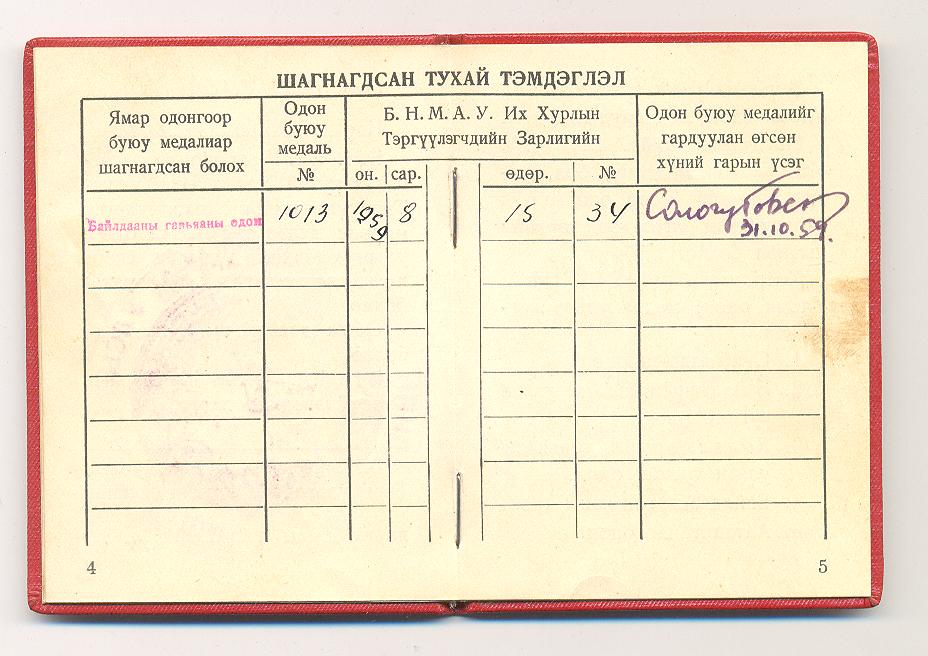 ШАГНАГДСАН ТУХАЙ ТЭМДЭГЛЭЛ
Ямар одонгоор
буюу медалиар
шагнагдсан болох
Одон
буюу
медаль
№
Б. Н. М. А. У. Их Хурлын
Тэргүүлэгчдийн Зарлигийн
он. сар.
өдөр. №
Одон буюу медалийг
гардуулан өгсөн
хүний гарын үсэг
Байлдааны гавьяаны одон
1013
1959
8
15
34
31.10.59.
4
5